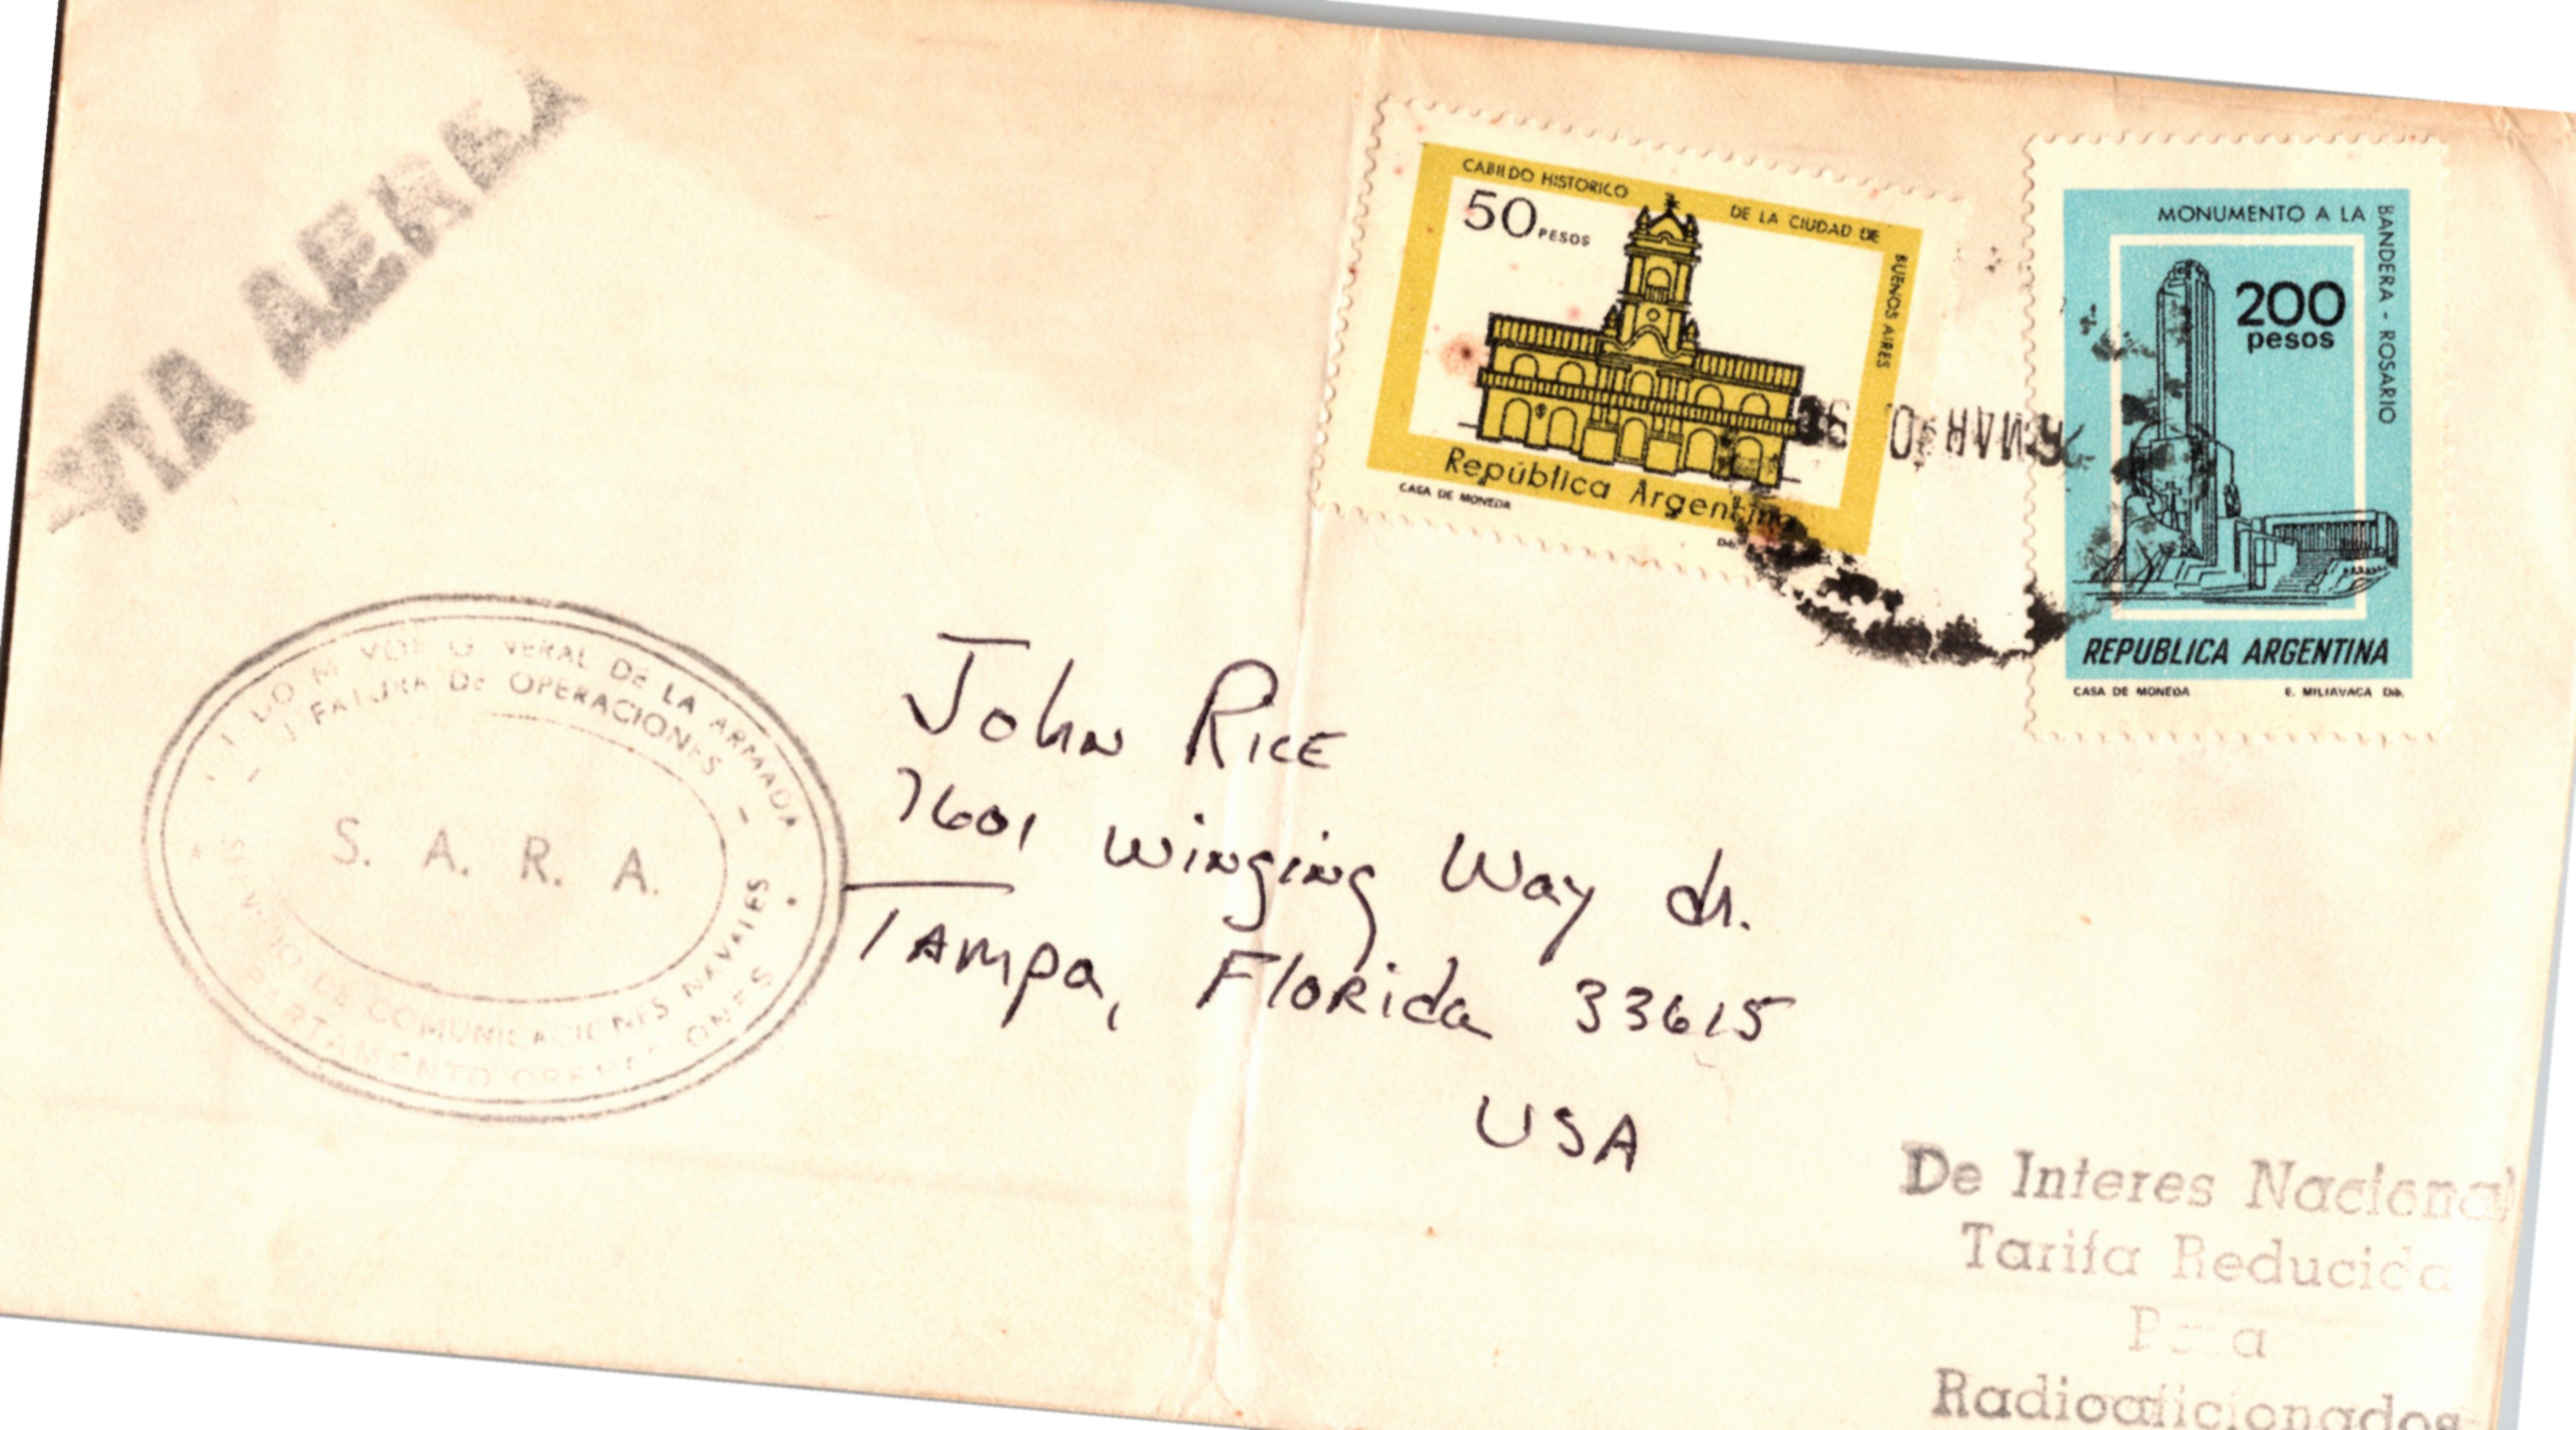 VIA AEREA
CABILDO HISTORICO DE LA CIUDAD DE BUENOS AIRES
50 PESOS
República Argentina
CASA DE MONEDA
MAR
MONUMENTO A LA BANDERA - ROSARIO
200
pesos
REPUBLICA ARGENTINA
CASA DE MONEDA E. MILIAVACA Dib.
GENERAL DE LA ARMADA
JEFATURA DE OPERACIONES
S. A. R. A.
SERVICIO DE COMUNICACIONES NAVALES
DEPARTAMENTO OPERACIONES
John Rice
7601 Winging Way dr.
Tampa, Florida 33615
USA
De Interes Nacional
Tarifa Reducida
Para
Radioaficionados